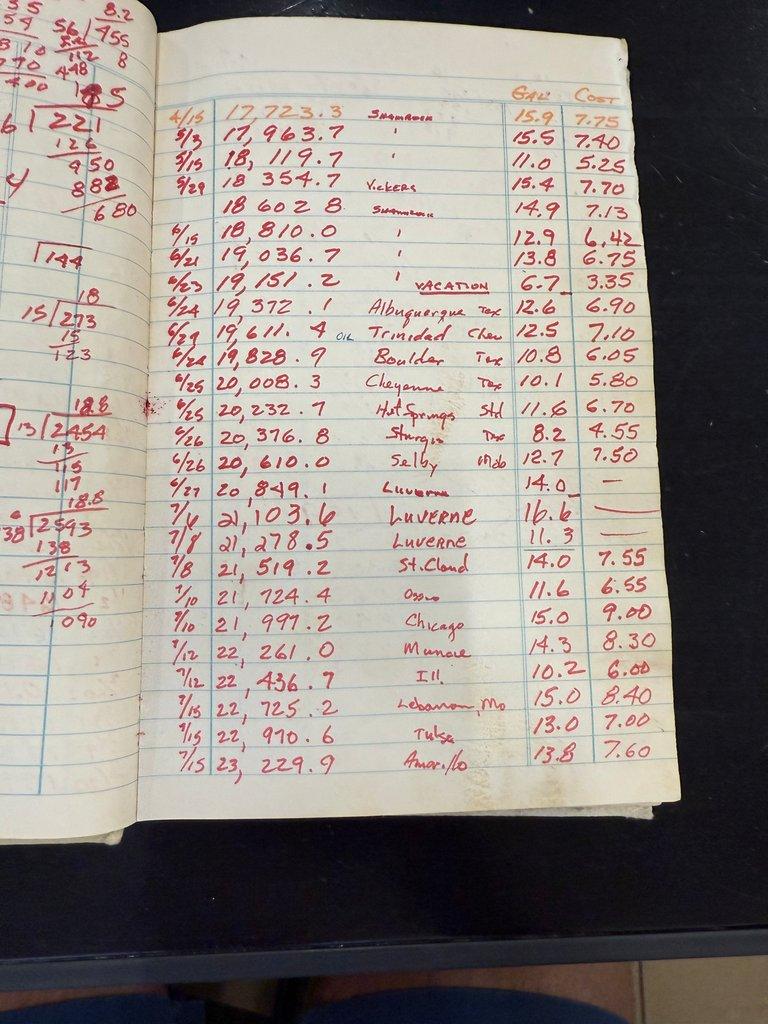 35
54
310
770
400
8.2
56 455
112 8
448
185
6 221
126
950
882
680
144
18
15 273
15
123
188
13 2454
13
115
117
18.8
138 2593
138
1213
1104
1090
GAL COST
4/15 17,723.3 SHAMROCK 15.9 7.75
5/3 17,963.7 " 15.5 7.40
5/15 18,119.7 " 11.0 5.25
5/29 18 354.7 VICKERS 15.4 7.70
18 602 8 SHAMROCK 14.9 7.13
6/15 18,810.0 " 12.9 6.42
6/21 19,036.7 " 13.8 6.75
6/23 19,151.2 " VACATION 6.7 3.35
6/24 19,372.1 Albuquerque Tex 12.6 6.90
6/24 19,611.4 OIL Trinidad Chev 12.5 7.10
6/24 19,828.9 Boulder Tex 10.8 6.05
6/25 20,008.3 Cheyenne Tex 10.1 5.80
6/25 20,232.7 Hot Springs Std 11.6 6.70
6/26 20,376.8 Sturgis Tex 8.2 4.55
6/26 20,610.0 Selby Mob 12.7 7.50
6/27 20,849.1 LUVERNE 14.0 —
7/6 21,103.6 LUVERNE 16.6 —
7/8 21,278.5 LUVERNE 11.3 —
7/8 21,519.2 St. Cloud 14.0 7.55
7/10 21,724.4 Osseo 11.6 6.55
7/10 21,997.2 Chicago 15.0 9.00
7/12 22,261.0 Muncie 14.3 8.30
7/12 22,436.7 Ill. 10.2 6.00
7/15 22,725.2 Lebanon, Mo 15.0 8.40
7/15 22,970.6 Tulsa 13.0 7.00
7/15 23,229.9 Amarillo 13.8 7.60